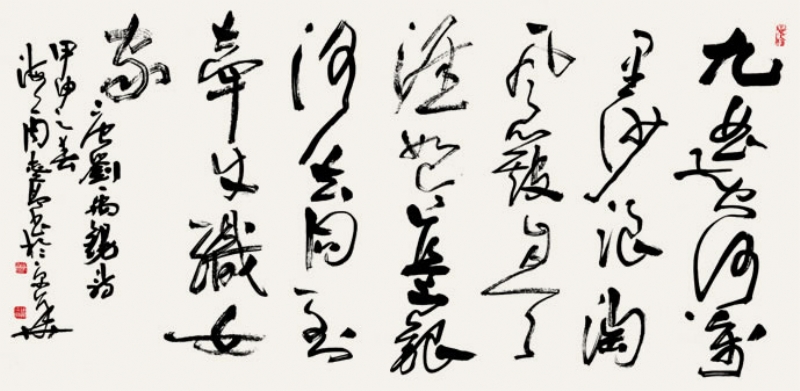 九曲黄河萬
里沙浪淘
風簸自天
涯如今直上銀
河去同到
牽牛織女
家
唐劉禹錫詩
甲申之春
海上周書於京華